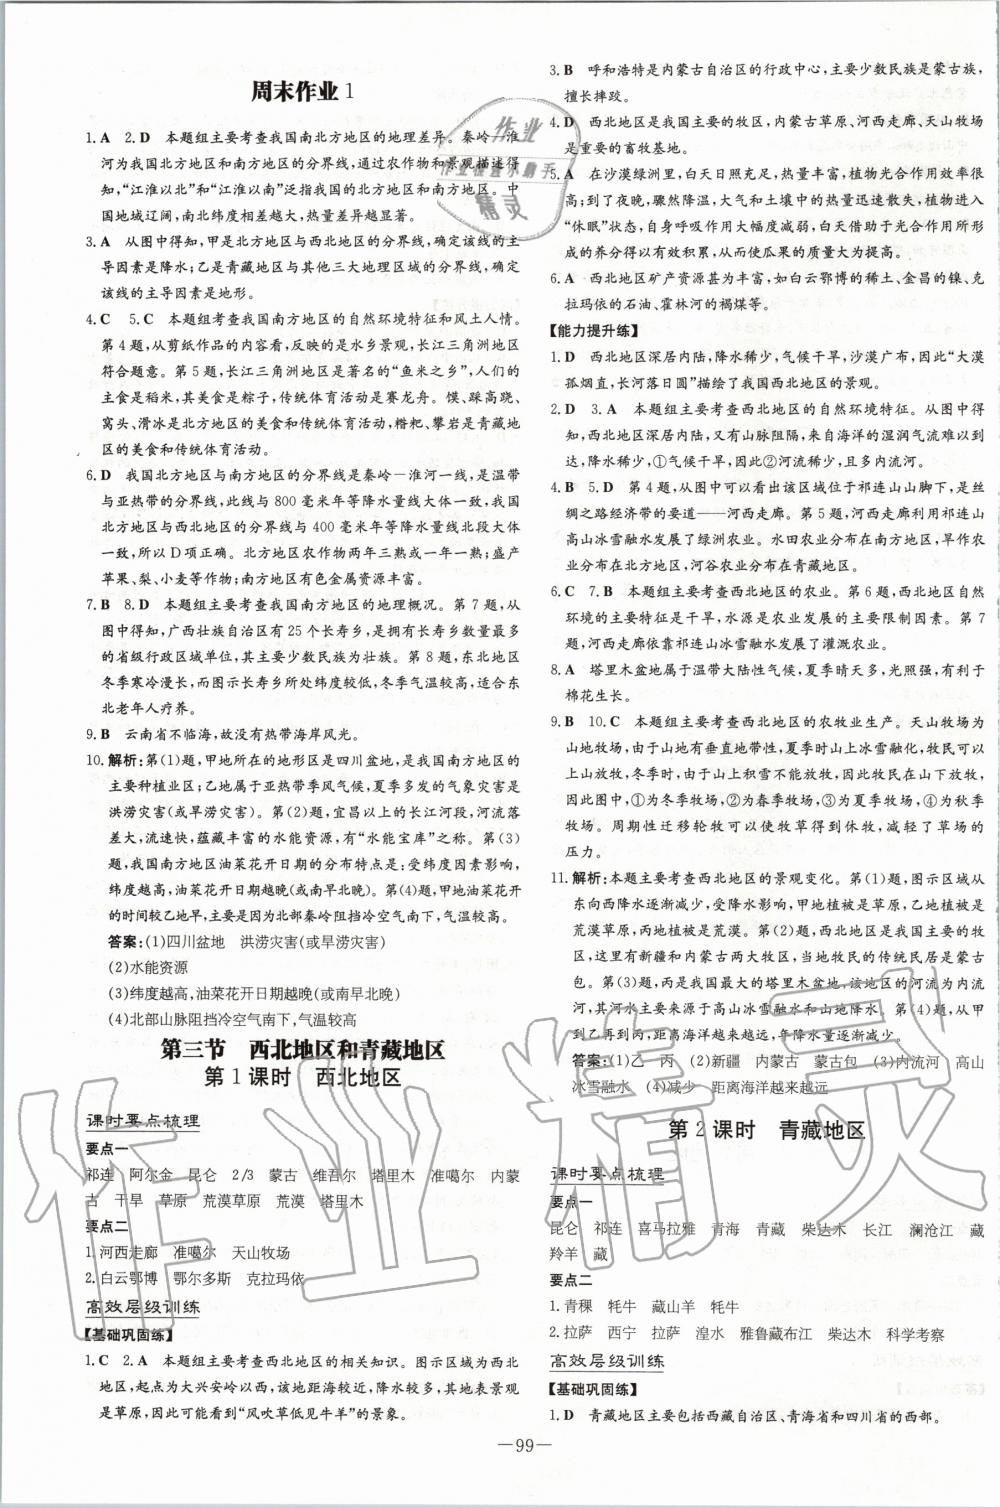 周末作业 1
1. A　2. D　本题组主要考查我国南北方地区的地理差异。秦岭—淮
河为我国北方地区和南方地区的分界线,通过农作物和景观描述得
知,“江淮以北”和“江淮以南”泛指我国的北方地区和南方地区。中
国地域辽阔,南北纬度相差越大,热量差异越显著。
3. A　从图中得知,甲是北方地区与西北地区的分界线,确定该线的主
导因素是降水;乙是青藏地区与其他三大地理区域的分界线,确定
该线的主导因素是地形。
4. C　5. C　本题组考查我国南方地区的自然环境特征和风土人情。
第 4 题,从剪纸作品的内容看,反映的是水乡景观,长江三角洲地区
符合题意。第 5 题,长江三角洲地区是著名的“鱼米之乡”,人们的
主食是稻米,其美食是粽子,传统体育活动是赛龙舟。馍、踩高跷、
窝头、滑冰是北方地区的美食和传统体育活动,糌粑、攀岩是青藏地
区的美食和传统体育活动。
6. D　我国北方地区与南方地区的分界线是秦岭—淮河一线,是温带
与亚热带的分界线,此线与 800 毫米年等降水量线大体一致,我国
北方地区与西北地区的分界线与 400 毫米年等降水量线北段大体
一致,所以 D 项正确。北方地区农作物两年三熟或一年一熟;盛产
苹果、梨、小麦等作物;南方地区有色金属资源丰富。
7. B　8. D　本题组主要考查我国南方地区的地理概况。第 7 题,从
图中得知,广西壮族自治区有 25 个长寿乡,是拥有长寿乡数量最多
的省级行政区域单位,其主要少数民族为壮族。第 8 题,东北地区
冬季寒冷漫长,而图示长寿乡所处纬度较低,冬季气温较高,适合东
北老年人疗养。
9. B　云南省不临海,故没有热带海岸风光。
10. 解析:第(1)题,甲地所在的地形区是四川盆地,是我国南方地区的
主要种植业区;乙地属于亚热带季风气候,夏季多发的气象灾害是
洪涝灾害(或旱涝灾害)。第(2)题,宜昌以上的长江河段,河流落
差大,流速快,蕴藏丰富的水能资源,有“水能宝库”之称。第(3)
题,我国南方地区油菜花开日期的分布特点是:受纬度因素影响,
纬度越高,油菜花开日期越晚(或南早北晚)。第(4)题,甲地油菜花开
的时间较乙地早,主要是因为北部秦岭阻挡冷空气南下,气温较高。
答案:(1)四川盆地　洪涝灾害(或旱涝灾害)
(2)水能资源
(3)纬度越高,油菜花开日期越晚(或南早北晚)
(4)北部山脉阻挡冷空气南下,气温较高
第三节　西北地区和青藏地区
第 1 课时　西北地区
课时要点梳理
要点一
祁连　阿尔金　昆仑　2/3　蒙古　维吾尔　塔里木　准噶尔　内蒙
古　干旱　草原　荒漠草原　荒漠　塔里木
要点二
1. 河西走廊　准噶尔　天山牧场
2. 白云鄂博　鄂尔多斯　克拉玛依
高效层级训练
【基础巩固练】
1. C　2. A　本题组主要考查西北地区的相关知识。图示区域为西北
地区,起点或大兴安岭以西,该地距海较近,降水较多,其地表景观
是草原,因此可能看到“风吹草低见牛羊”的景象。
3. B　呼和浩特是内蒙古自治区的行政中心,主要少数民族是蒙古族,
擅长摔跤。
4. D　西北地区是我国主要的牧区,内蒙古草原、河西走廊、天山牧场
是重要的畜牧基地。
5. A　在沙漠绿洲里,白天日照充足,热量丰富,植物光合作用能力
强,到了夜晚,骤然降温,大气和土壤中的热量迅速散失,植物进入
“休眠”状态,自身呼吸作用大大减弱,白天借助于光合作用所形成
的养分得以有效积累,从而使瓜果的质量大为提高。
6. A　西北地区矿产资源甚为丰富,如白云鄂博的稀土、金昌的镍、克
拉玛依的石油、霍林河的褐煤等。
【能力提升练】
1. D　西北地区深居内陆,降水稀少,气候干旱,沙漠广布,因此“大漠
孤烟直,长河落日圆”描绘了我国西北地区的景观。
2. D　3. A　本题组主要考查西北地区的自然环境特征。从图中得
知,西北地区深居内陆,又有山脉阻隔,来自海洋的湿润气流难以到
达,降水稀少,①气候干旱,因此②河流稀少,且多内流河。
4. B　5. D　第 4 题,从图中可以看出该区域位于祁连山山脚下,是丝
绸之路经济带的要道——河西走廊。第 5 题,河西走廊利用祁连山
高山冰雪融水发展了绿洲农业。水田农业分布在南方地区,旱作农
业分布在北方地区,河谷农业分布在青藏地区。
6. C　7. B　本题组主要考查西北地区的农业。第 6 题,西北地区自然
环境的主要特征是干旱,水源是农业发展的主要限制因素。第 7
题,河西走廊依靠祁连山冰雪融水发展了灌溉农业。
8. A　塔里木盆地属于温带大陆性气候,夏季晴天多,光照强,有利于
棉花生长。
9. B　10. C　本题组主要考查西北地区的农牧业生产。天山牧场为
山地牧场,由于山地有垂直地带性,夏季时山上冰雪融化,牧民可以
上山放牧,冬季时,由于山上积雪不能放牧,因此牧民在山下放牧,
因此图中,①为冬季牧场,②为春季牧场,③为夏季牧场,④为秋季
牧场。周期性迁移轮牧可以使牧草得到休牧,减轻了草场的
压力。
11. 解析:本题主要考查西北地区的景观变化。第(1)题,图示区域从
东向西降水减少,受降水影响,甲地植被是草原,乙地植被是
荒漠草原,丙地植被是荒漠。第(2)题,西北地区是我国主要的牧
区,这里有新疆和内蒙古两大牧区,当地牧民的传统民居是蒙古
包。第(3)题,丙是我国最大的塔里木盆地,该地区的河流为内流
河,其河水主要来源于高山冰雪融水和山地降水。第(4)题,从甲
到乙再到丙,距离海洋越来越远,年降水量逐渐减少。
答案:(1)乙　丙　(2)新疆　内蒙古　蒙古包　(3)内流河　高山
冰雪融水　(4)减少　距离海洋越来越远
第 2 课时　青藏地区
课时要点梳理
要点一
昆仑　祁连　喜马拉雅　青海　青藏　柴达木　长江　澜沧江　藏
羚羊　藏
要点二
1. 青稞　牦牛　藏山羊　牦牛
2. 拉萨　西宁　拉萨　湟水　雅鲁藏布江　柴达木　科学考察
高效层级训练
【基础巩固练】
1. D　青藏地区主要包括西藏自治区、青海省和四川省的西部。
—99—
作业
作业检查小助手
精灵
作业精灵